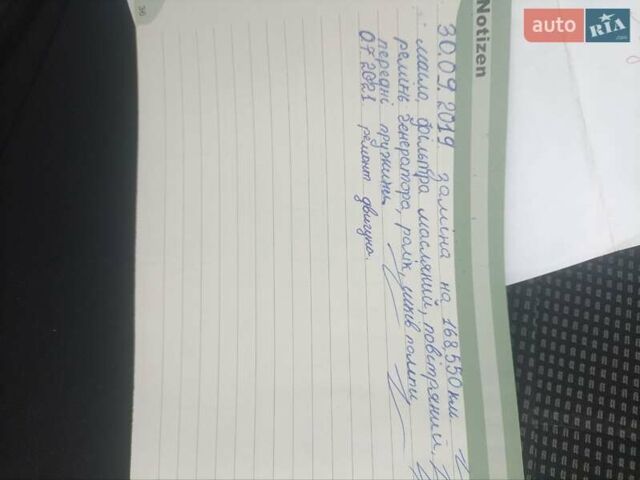 Notizen
30.09.2019 заміна на 168,550 км
масло, фільтра масляний, повітряний,
ремінь генератора, ролік, шків помпи
передні пружини
07.2021 ремонт двигуна.
36
auto RIA.com